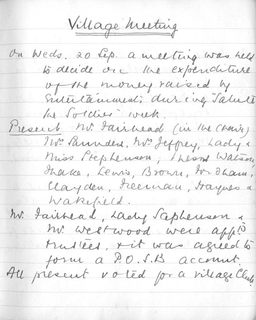 Village Meeting
On Weds. 20 Sep. a meeting was held
to decide on the expenditure
of the money raised by
Entertainments during Salute
the Soldier week.
Present Mr. Fairhead (in the Chair)
Mr. Saunders, Mr. Jeffrey, Lady &
Miss Stephenson, Watson,
Drake, Lewis, Brown,
Clayden, Freeman, Haynes &
Wakefield.
Mr. Fairhead, Lady Stephenson &
Mr. Westwood were appt'd
trustees, & it was agreed to
form a P.O.S.B account.
All present voted for a Village Club